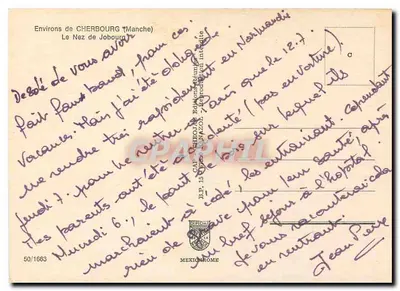 Environs de CHERBOURG (Manche)
Le Nez de Jobourg
Désolé de vous avoir
fait faux bond, pour ces
vacances. Mais j'ai été obligé de
me rendre très rapidement en Normandie
jeudi 7. pour ne rentrer à Paris que le 12.7.
Mes parents ont été accidenté (pas en voiture)
Mercredi 6, le pont de bois sur lequel ils
marchaient à cédé, les entrainant. Cependant
rien de grave pour leur santé, après
un bref séjour à l'hopital.
Je vous raconterai cela
en rentrant.
Jean Pierre
50/1663
MEXICHROME